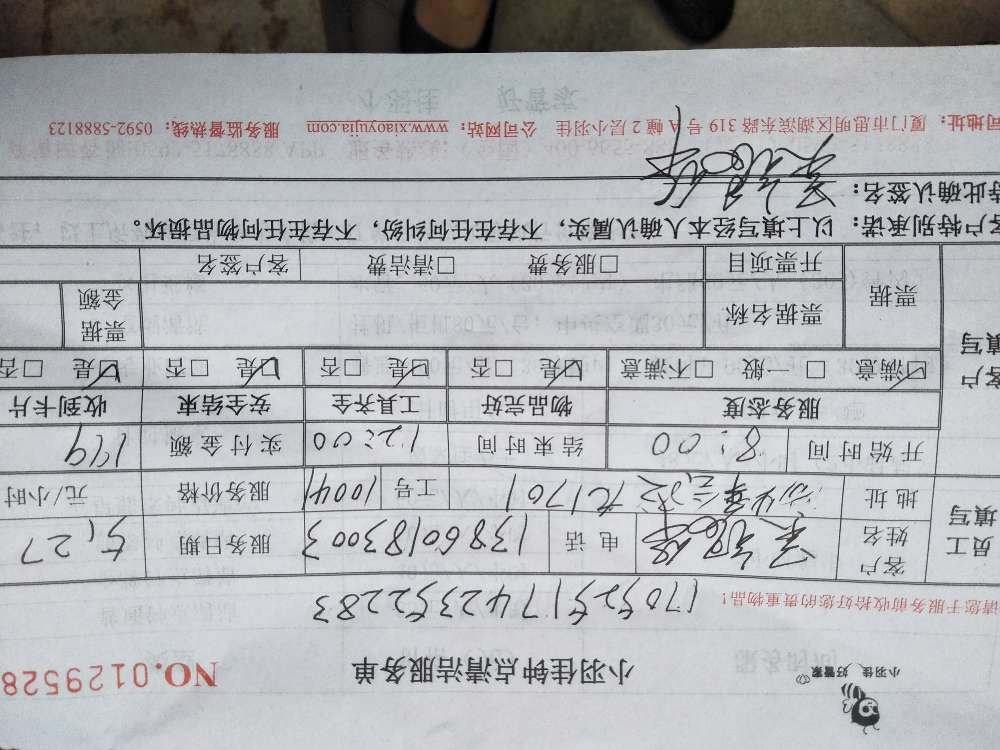 小羽佳 好管家
小羽佳钟点清洁服务单
NO.0129528
请您于服务前收拾好您的贵重物品!
17052517423522 83
员工填写
客户姓名 电话 13860183003 服务日期 5.27
地址 工号 10041 服务价格 元/小时
开始时间 8:00 结束时间 12:00 实付金额 149
客户填写
服务态度 物品完好 工具齐全 安全结束 收到卡片
☑满意 □一般 □不满意 ☑是 □否 ☑是 □否 ☑是 □否 ☑是 □否
票据 票据名称 票据金额
开票项目 □服务费 □清洁费 客户签名
客户特别承诺:以上填写经本人确认属实,不存在任何纠纷,不存在任何物品损坏。
特此确认签名:
司地址:厦门市思明区湖滨东路 319 号 A 幢 2 层小羽佳 公司网站:www.xiaoyujia.com 服务监督热线:0592-5888123